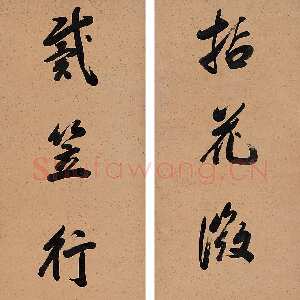 拈花微
戴笠行
Shufawang.CN